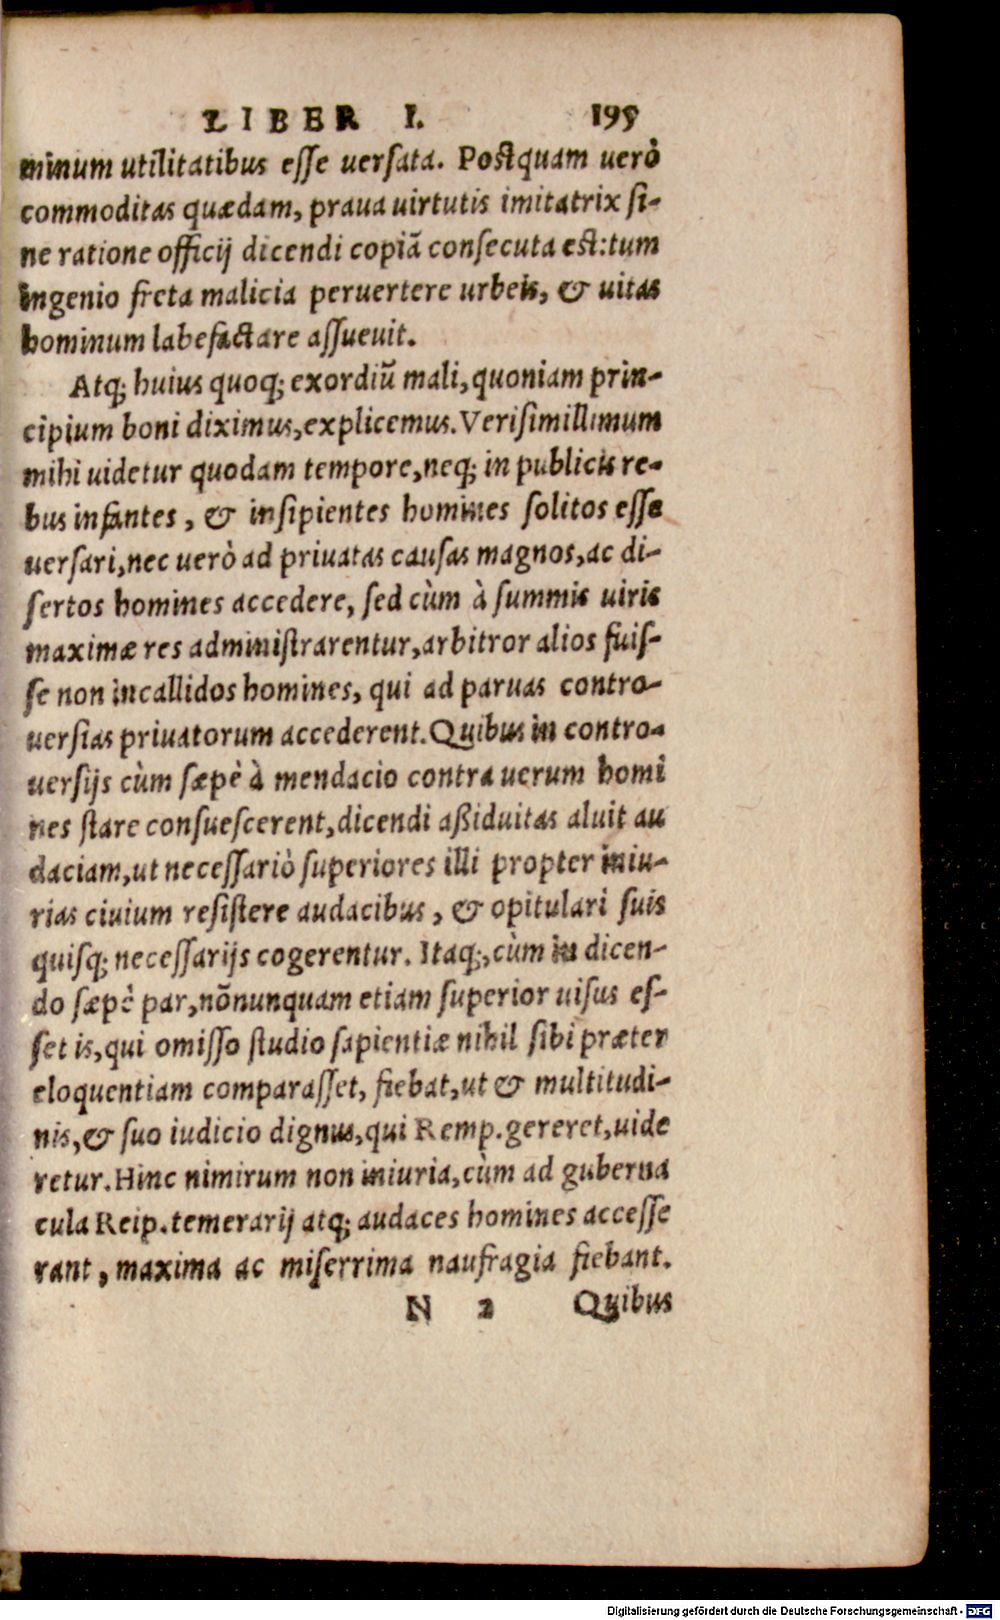 LIBER I. 195
minum utilitatibus esse uersata. Postquam uerò
commoditas quædam, praua uirtutis imitatrix si-
ne ratione officij dicendi copiã consecuta est: tum
ingenio freta malicia peruertere urbeis, & uitas
hominum labefactare assueuit.
Atq; huius quoq; exordiũ mali, quoniam prin-
cipium boni diximus, explicemus. Verisimillimum
mihi uidetur quodam tempore, neq; in publicis re-
bus infantes, & insipientes homines solitos esse
uersari, nec uerò ad priuatas causas magnos, ac di-
sertos homines accedere, sed cùm à summis uiris
maximæ res administrarentur, arbitror alios fuis-
se non incallidos homines, qui ad paruas contro-
uersias priuatorum accederent. Quibus in contro-
uersijs cùm sæpè à mendacio contra uerum homi
nes stare consuescerent, dicendi aßiduitas aluit au
daciam, ut necessariò superiores illi propter iniu-
rias ciuium resistere audacibus, & opitulari suis
quisq; necessarijs cogerentur. Itaq;, cùm in dicen-
do sæpè par, nõnunquam etiam superior uisus es-
set is, qui omisso studio sapientiæ nihil sibi præter
eloquentiam comparasset, fiebat, ut & multitudi-
nis, & suo iudicio dignus, qui Remp. gereret, uide
retur. Hinc nimirum non iniuria, cùm ad guberna
cula Reip. temerarij atq; audaces homines accesse
rant, maxima ac miserrima naufragia fiebant.
N 2 Quibus
Digitalisierung gefördert durch die Deutsche Forschungsgemeinschaft - DFG